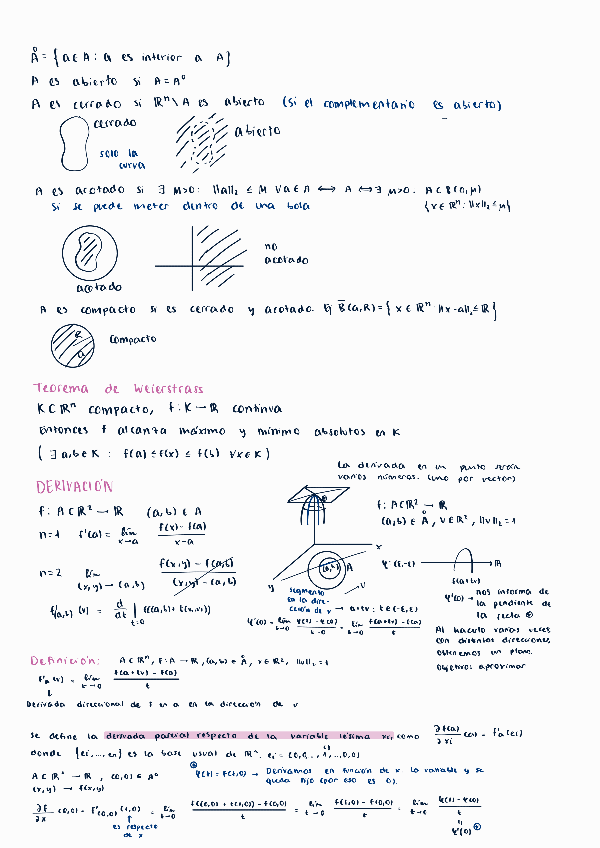 Å = { a ∈ A : a es interior a A }
A es abierto si A = A°
A es cerrado si ℝⁿ \ A es abierto (si el complementario es abierto)
cerrado
abierto
solo la
curva
A es acotado si ∃ M>0 : ||a||₂ ≤ M ∀a ∈ A ⟷ A ⟷ ∃ M>0. A ⊂ B(0,M)
Si se puede meter dentro de una bola {x ∈ ℝⁿ : ||x||₂ ≤ M}
no
acotado
acotado
A es compacto si es cerrado y acotado. Ej B̅(a,R) = { x ∈ ℝⁿ ||x-a||₂ ≤ R }
R
a
compacto
Teorema de Weierstrass
K ⊂ ℝⁿ compacto, f : K → ℝ continua
Entonces f alcanza máximo y mínimo absolutos en K
( ∃ a,b ∈ K : f(a) ≤ f(x) ≤ f(b) ∀x ∈ K )
La derivada en un punto serán
varios números. (uno por vector)
DERIVACIÓN
f : A ⊂ ℝ² → ℝ (a,b) ∈ A
n=1 f'(a) = lim x→a f(x) - f(a) / x-a
n=2 lim (x,y) → (a,b) f(x,y) - f(a,b) / (x,y) - (a,b)
f'(a,b) (v) = d/dt | t=0 f((a,b) + t(v₁,v₂))
x
y
(a,b) A
v
segmento
en la dire-
cción de v → a+tv : t ∈ (-ε,ε)
φ'(0) = lim t→0 φ(t) - φ(0) / t-0 = lim t→0 f(a+tv) - f(a) / t
f : A ⊂ ℝ² → ℝ
(a,b) ∈ Å, v ∈ ℝ², ||v||=1
φ : (-ε,ε) → ℝ
f(a+tv)
φ'(0) → nos informa de
la pendiente de
la recta
Al hacerlo varias veces
con distintas direcciones,
obtenemos un plano.
Objetivo: aproximar
Definición: A ⊂ ℝⁿ, f : A → ℝ, (a,b) ∈ Å, v ∈ ℝ², ||v||=1
f'a (v) = lim t→0 f(a+tv) - f(a) / t
Derivada direccional de f en a en la dirección de v
Se define la derivada parcial respecto de la variable iésima xi, como ∂f(a)/∂xi (a) = f'a (ei)
donde {ei, ..., en} es la base usual de ℝⁿ. ei = (0,0,..,1,...,0,0)
A ⊂ ℝ² → ℝ, (0,0) ∈ A°
(x,y) → f(x,y)
φ(t) = f(t,0) → Derivamos en función de x la variable y se
queda fijo (por eso es 0).
∂f/∂x (0,0) = f'(0,0) (1,0) = lim t→0 f((0,0) + t(1,0)) - f(0,0) / t = lim t→0 f(t,0) - f(0,0) / t = lim t→0 φ(t) - φ(0) / t
es respecto
de x
φ'(0)